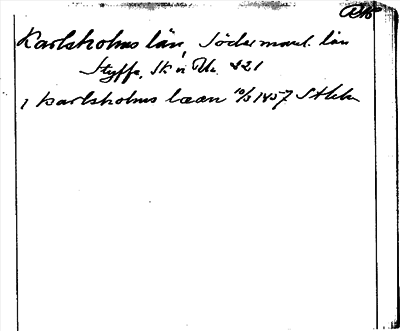 Karlsholms län, Södermanl. län
Styffe, Sk u Un. 221
i Karlsholms læen 10/3 1457 Sthlm